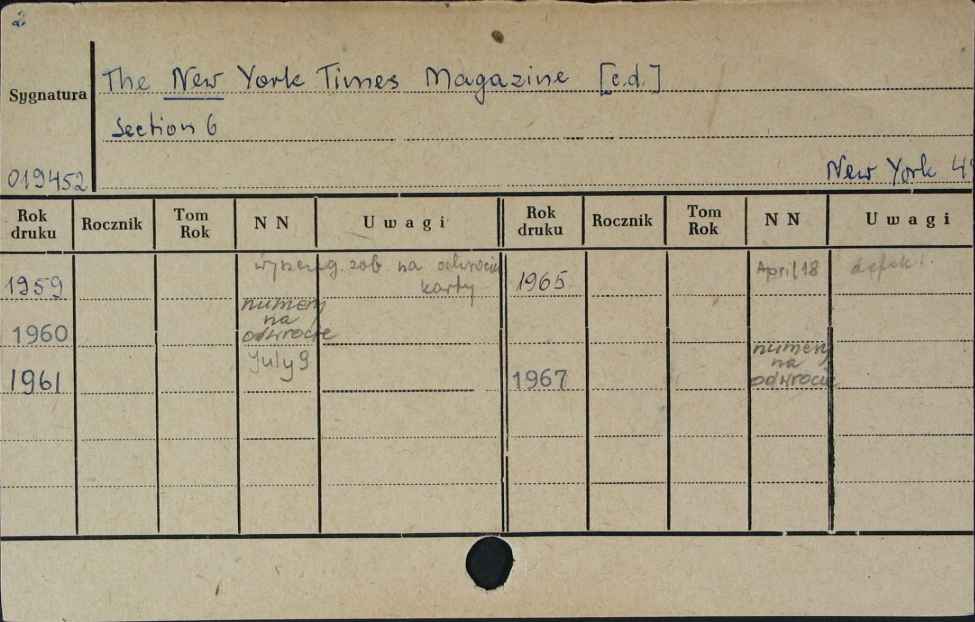 2
The New York Times Magazine [c.d.]
Sygnatura
Section 6
019452
New York 49
Rok druku Rocznik Tom Rok N N Uwagi Rok druku Rocznik Tom Rok N N Uwagi
1959 zob na odwrocie karty 1965 April 18 defekt
1960 numery na odwrocie
1961 July 9 1967 numery na odwrocie